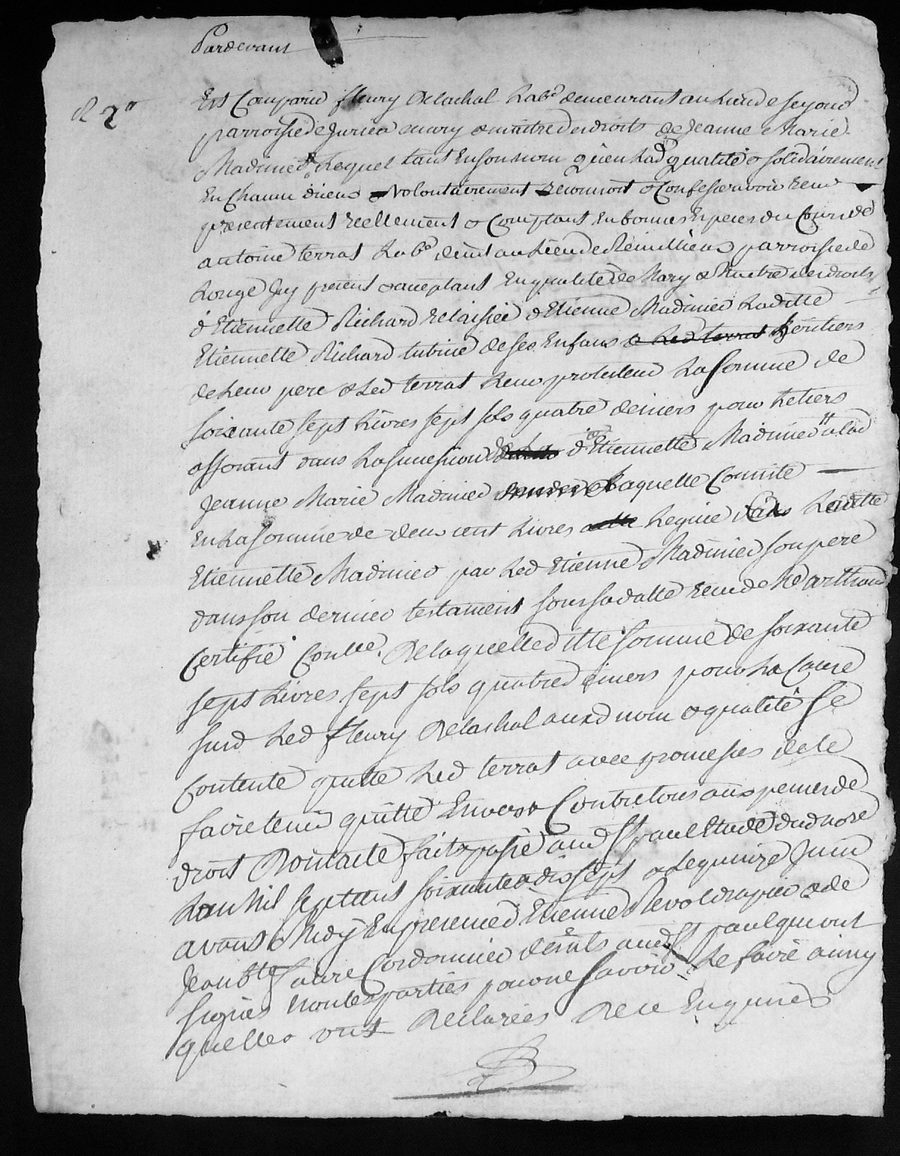 Pardevant
R 2"
Est Comparu fleury Delachal Labr demeurant au Lieu de seyoux
parroisse de Jurieu mary & maitre des droits de Jeanne Marie
Madinier Lequel tant En son nom qu'en Lad qualité & solidairement
volontairement & Confesse avoir Reçu
présentement Réellement & Comptant En bonnes Espèces du Cours de
antoine terrat Labr demt au Lieu de Rémillieux parroisse de
Longe Jcy présent & aceptant En qualité de Mary & Maitre des droits
d'Etiennette Richard Relaissée d'Etienne Madinier Laditte
Etiennette Richard tutrice de ses Enfans heritiers
de Leur pere & Led terrat Leur protuteur La somme de
soixante sept Livres sept sols quatre deniers pour Le tiers
afferant dans La succession d'Etiennette Madinier a lad
Jeanne Marie Madinier Laquelle Consiste
En La somme de deux cent Livres Leguée a Laditte
Etiennette Madinier par Led Etienne Madinier son pere
dans son dernier testament sous sa datte Reçu de Me arthaud
Certifié Conllé. De laquelle ditte somme de soixante
sept Livres sept sols quatre deniers pour La Cause
susd Led fleury Delachal auxd nom & qualité se
Contente quitte Led terrat avec promesses de le
faire tenir quitte Envers & Contre tous aux peines de
droit Dont acte fait & passé aud St paul Etude dud nore
L'an Mil sept cent soixante dix sept & Le quinze Juin
avant Midy En presence d Etienne drapier & de
Jean Bte faure Cordonnier demts aud St paul qui ont
signés non les parties pour ne savoir Le faire ainsy
quelles ont Declarées De ce Enquises